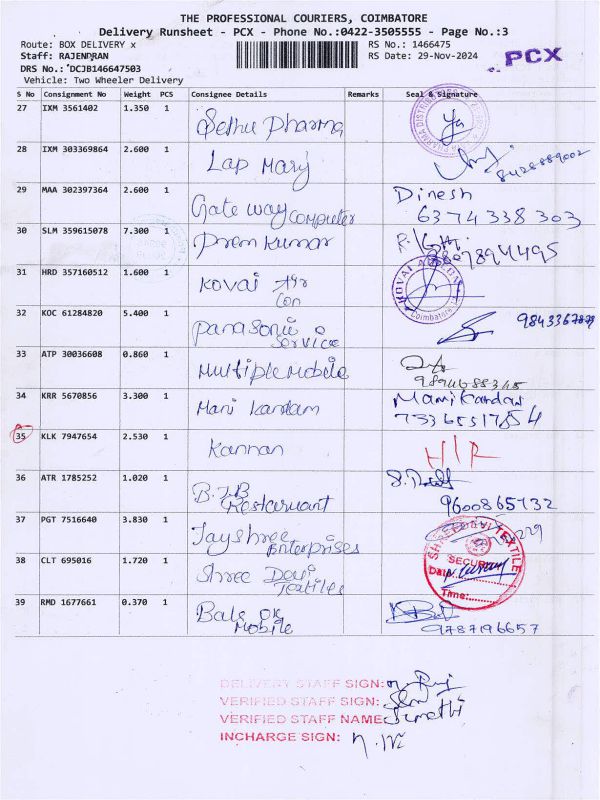 THE PROFESSIONAL COURIERS, COIMBATORE
Delivery Runsheet - PCX - Phone No.:0422-3505555 - Page No.:3
Route: BOX DELIVERY x RS No.: 1466475
Staff: RAJENDRAN RS Date: 29-Nov-2024 PCX
DRS No.: DCJB146647503
Vehicle: Two Wheeler Delivery
S No Consignment No Weight PCS Consignee Details Remarks Seal & Signature
27 IXM 3561402 1.350 1 Sethu Pharma
28 IXM 303369864 2.600 1 Lap Mary 8428889002
29 MAA 302397364 2.600 1 Gate way computer Dinesh
6374338303
30 SLM 359615078 7.300 1 Prem Kumar
31 HRD 357160512 1.600 1 Kovai Air
Con KOVAI Coimbatore
32 KOC 61284820 5.400 1 Panasonic
Service
33 ATP 30036608 0.860 1 Multiple Mobile
34 KRR 5670856 3.300 1 Mani Kandam Manikandan
35 KLK 7947654 2.530 1 Kannan H/R
36 ATR 1785252 1.020 1
Restaruant 9600865732
37 PGT 7516640 3.830 1 Jayshree
Enterprises
38 CLT 695016 1.720 1 Shree Devi
Textiles SHREE DEVI TEXTILE
SECURITY
Date:
Time:
39 RMD 1677661 0.370 1 Bale OK
Mobile 9787196657
DELIVERY STAFF SIGN:
VERIFIED STAFF SIGN:
VERIFIED STAFF NAME: Sumathi
INCHARGE SIGN: